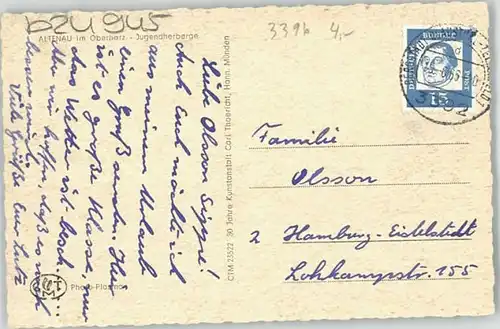 b24945
ALTENAU im Oberharz - Jugendherberge
339b 4,-
DEUTSCHE
BUNDESPOST
15
3392
Liebe Olsson Sippe!
Auch Euch möchte ich
aus meinem Urlaub
einen Gruß senden. Hier
ist es große Klasse, nur
das Wetter ist besch...
Aber wir hoffen, daß es noch
besser wird.
Viele Grüße Eure
CTM 23522 30 Jahre Kunstanstalt Carl Thoericht, Hann. Münden
Photo-Plasman
Familie
Olsson
2 Hamburg-Eidelstedt
Lohkampstr. 155